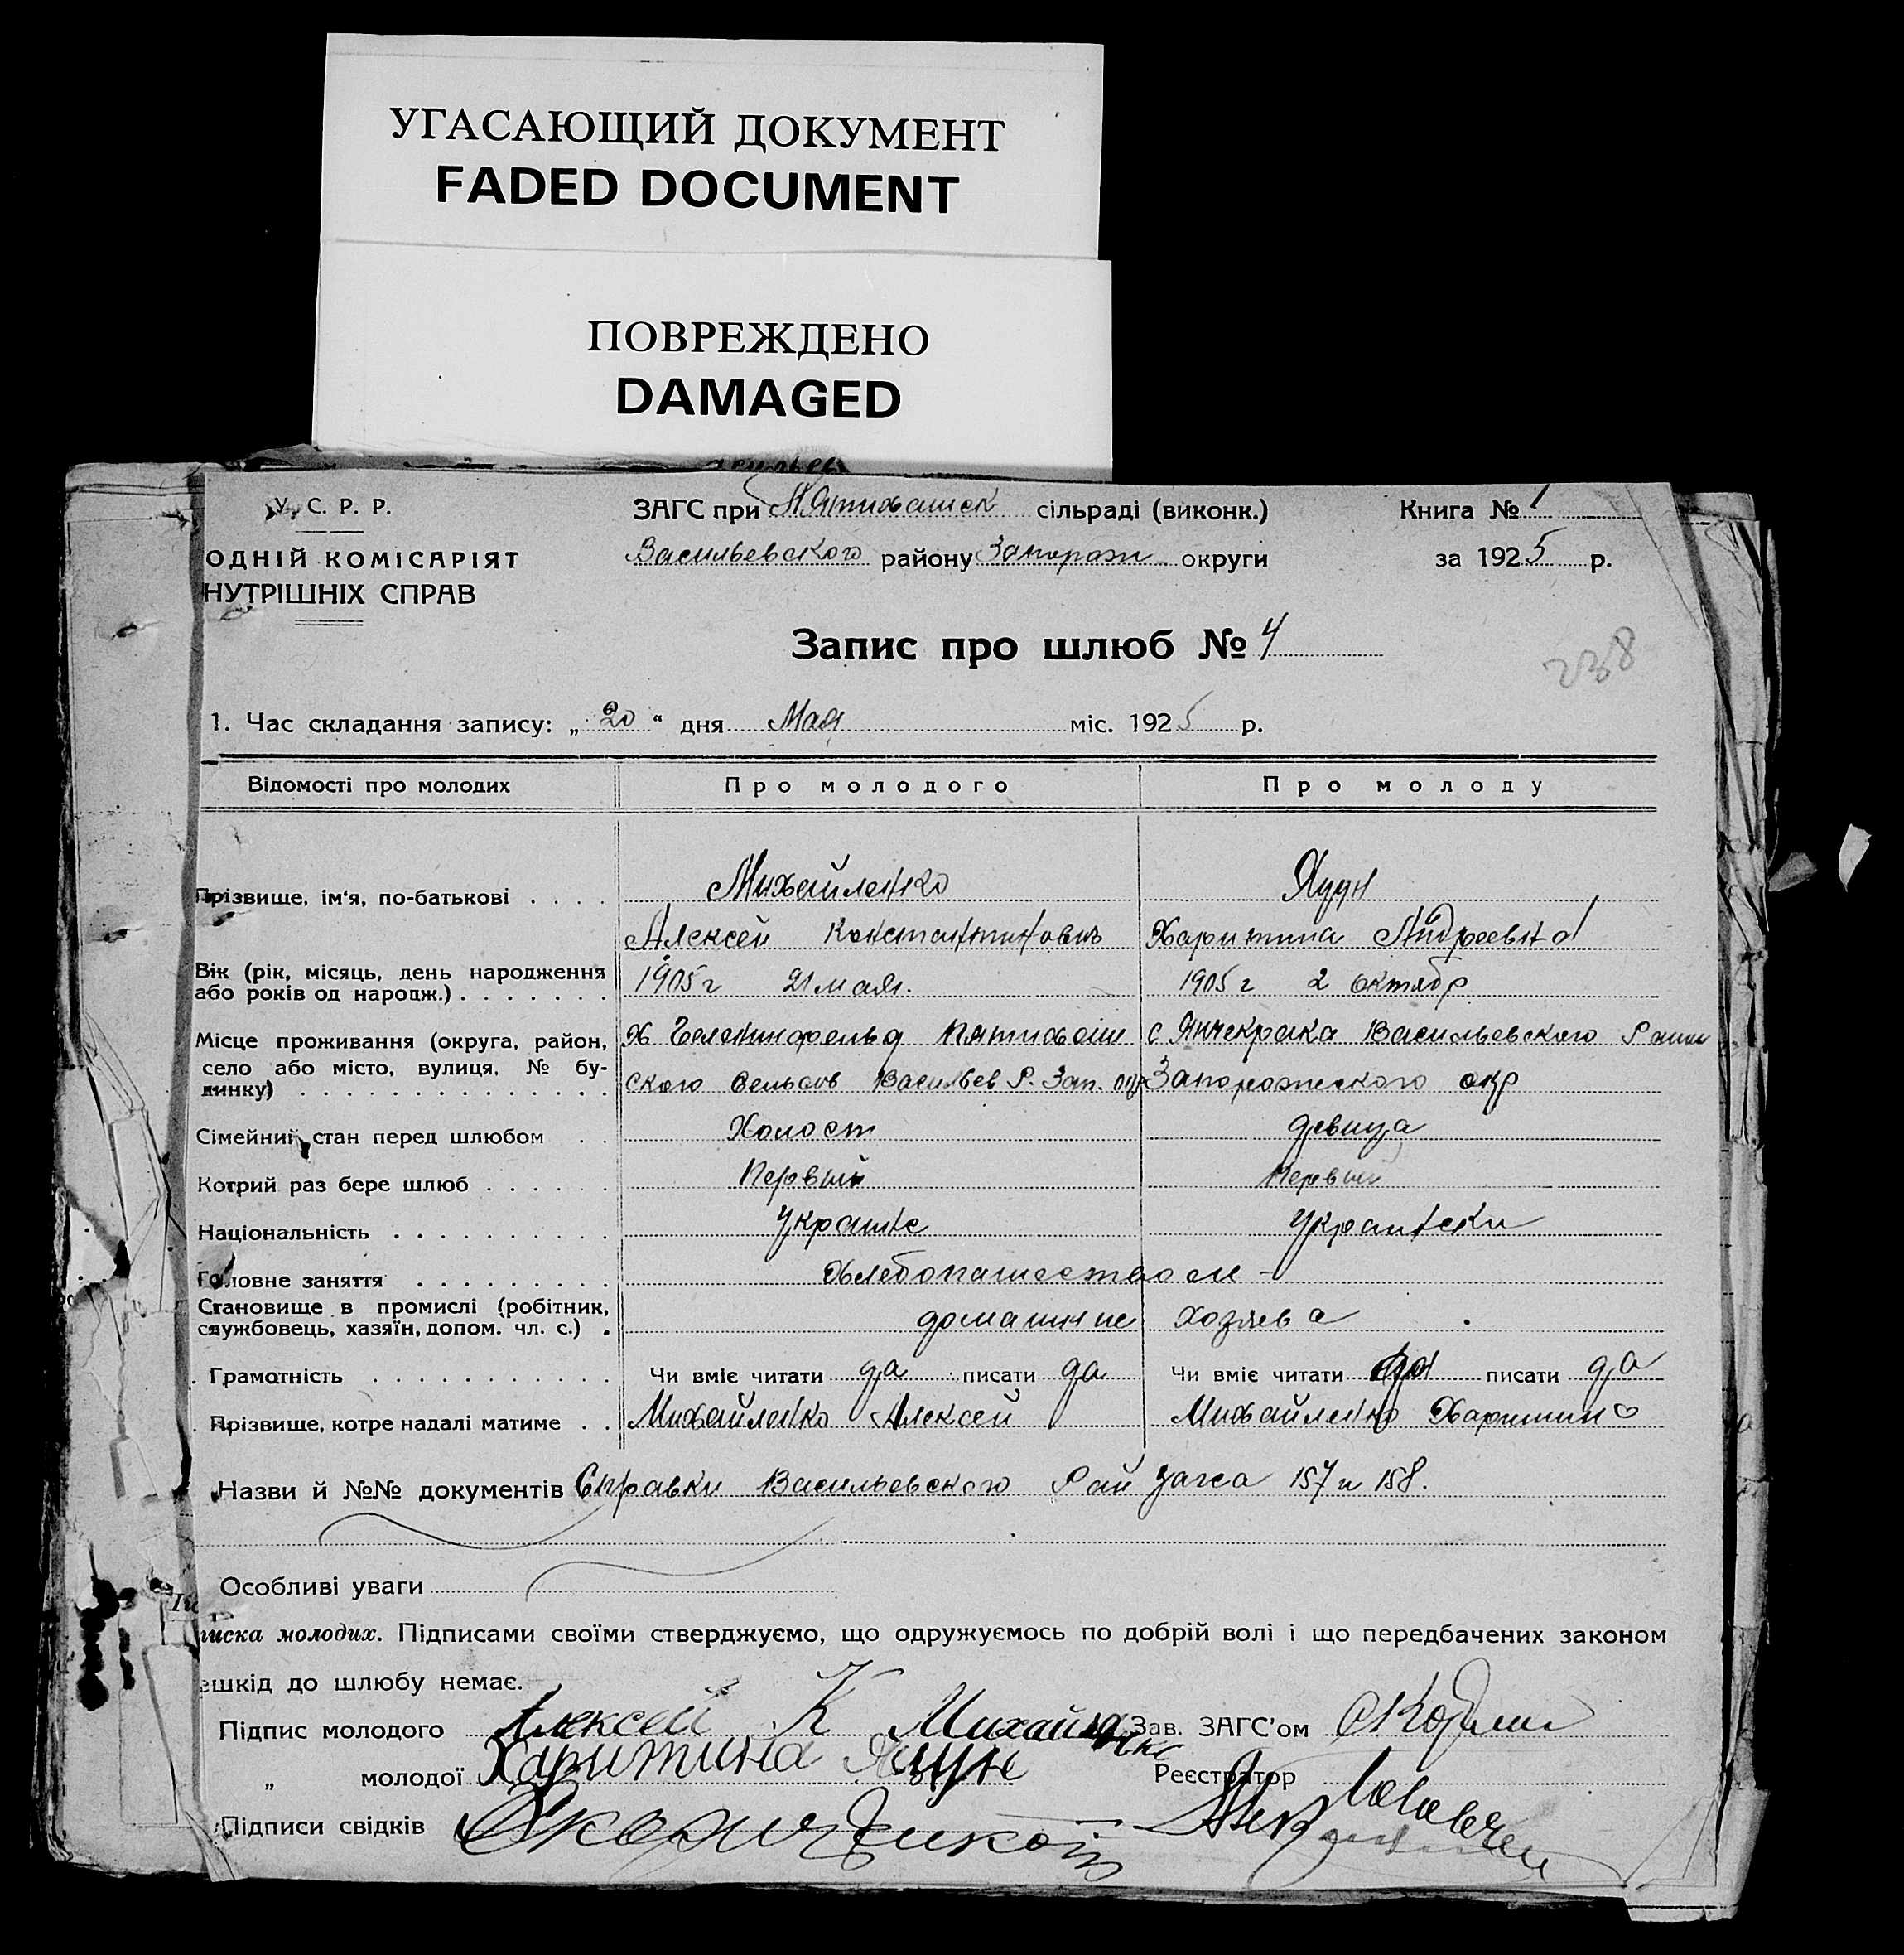 УГАСАЮЩИЙ ДОКУМЕНТ
FADED DOCUMENT
ПОВРЕЖДЕНО
DAMAGED
У. С. Р. Р.
ЗАГС при Пятихатск сільраді (виконк.)
Книга № 1
ОДНІЙ КОМІСАРІЯТ
Васильевского району Запорож округи
за 1925 р.
НУТРІШНІХ СПРАВ
Запис про шлюб № 4
238
1. Час складання запису: „ 20 “ дня Мая міс. 1925 р.
Відомості про молодих Про молодого Про молоду
Прізвище, ім‘я, по-батькові . . . . Михайленко
Алексей Константинович Харитина Андреевна
Вік (рік, місяць, день народження або років од народж.) . . . . . . . 1905 г 21 мая. 1905 г 2 октябр
Місце проживання (округа, район, х Пятихат с Янчекрака Васильевского Раин
село або місто, вулиця, № бу-
динку) . . . . . . . . . . . . . . ского сельсов Васильев Р. Зап. окр Запорожского окр
Сімейний стан перед шлюбом . . Холост девица
Котрий раз бере шлюб . . . . . . Первый Первый
Національність . . . . . . . . . . Украине Украински
Головне заняття . . . . . . . . . Хлебопашеством -
Становище в промислі (робітник,
службовець, хазяїн, допом. чл. с.) . домашние хозяева .
Грамотність . . . . . . . . . . . . Чи вміє читати да писати да Чи вміє читати да писати да
Прізвище, котре надалі матиме . . Михайленко Алексей Михайленко Харитина
Назви й №№ документів Справки Васильевского Рай загса 157 и 158.
Особливі уваги
писка молодих. Підписами своїми стверджуємо, що одружуємось по добрій волі і що передбачених законом
ешкід до шлюбу немає.
Підпис молодого Алексей К Михайленко Зав. ЗАГС'ом
„ молодої Харитина Реєстратор
Підписи свідків